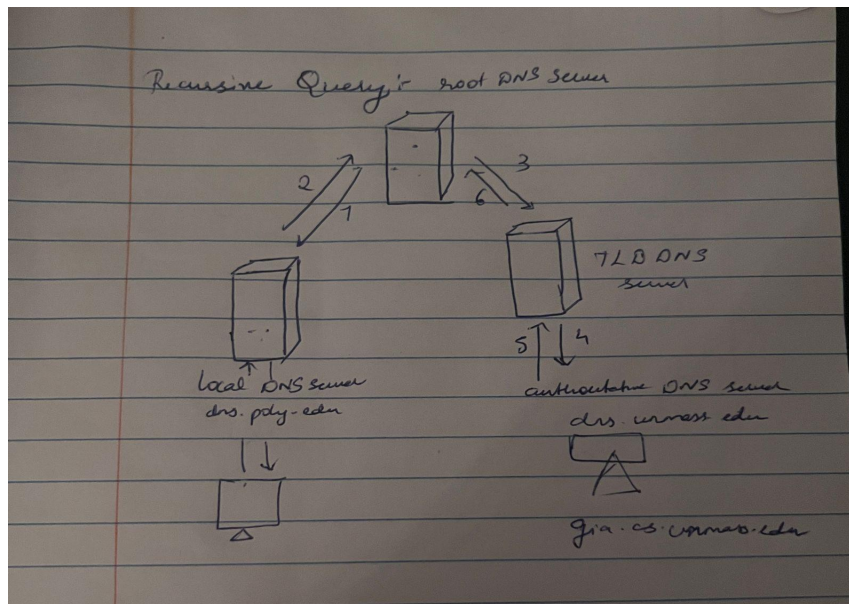 Recursive Query:- root DNS server
2
1
3
6
TLD DNS
server
5
4
local DNS server
dns.poly-edu
authoutative DNS server
dns.umass edu
gia.cs.umass.edu